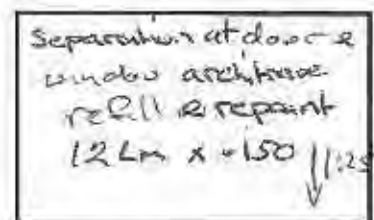 Separation at door &
window architrave
refill & repaint
12 Lm x .150
1:25